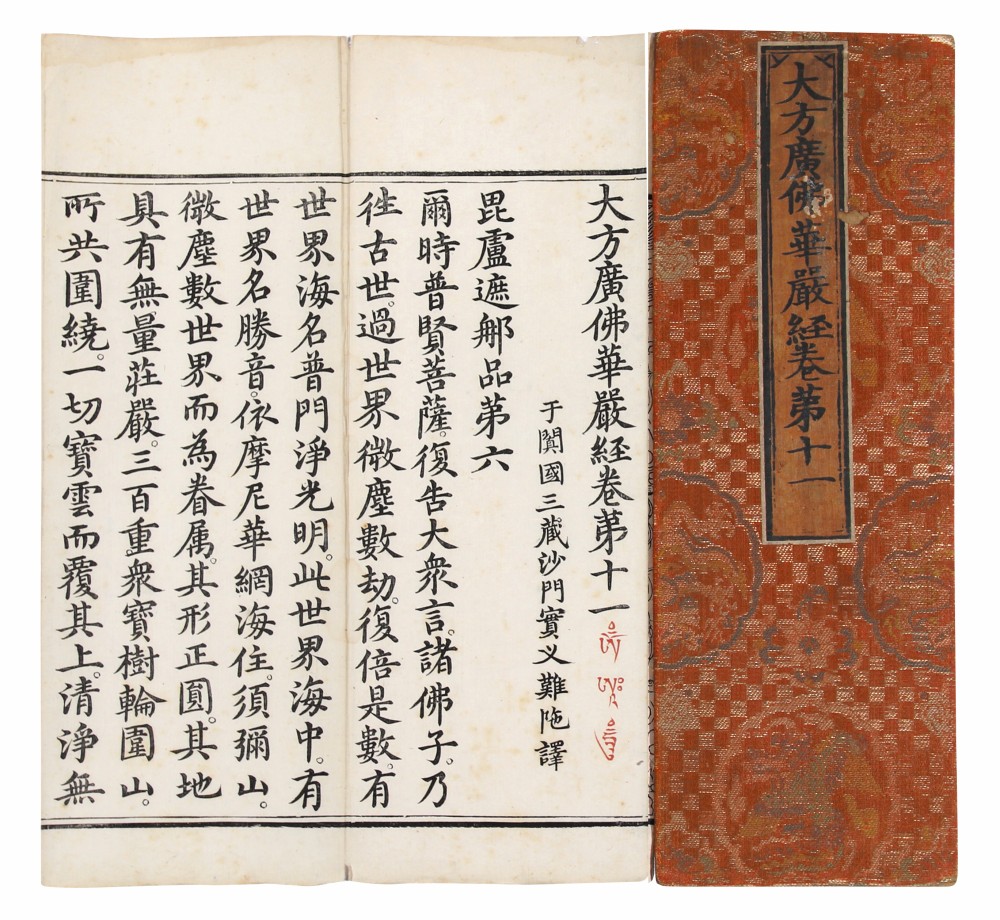 大方廣佛華嚴経卷苐十一
大方廣佛華嚴経卷苐十一
于闐國三藏沙門實义難陁譯
毘盧遮那品苐六
爾時普賢菩薩。復告大衆言。諸佛子。乃
徃古世。過世界微塵數劫。復倍是數。有
世界海名普門淨光明。此世界海中。有
世界名勝音。依摩尼華網海住。須彌山
微塵數世界而為眷属。其形正圓。其地
具有無量莊嚴。三百重衆寶樹輪圍山。
所共圍繞。一切寶雲而覆其上。清淨無